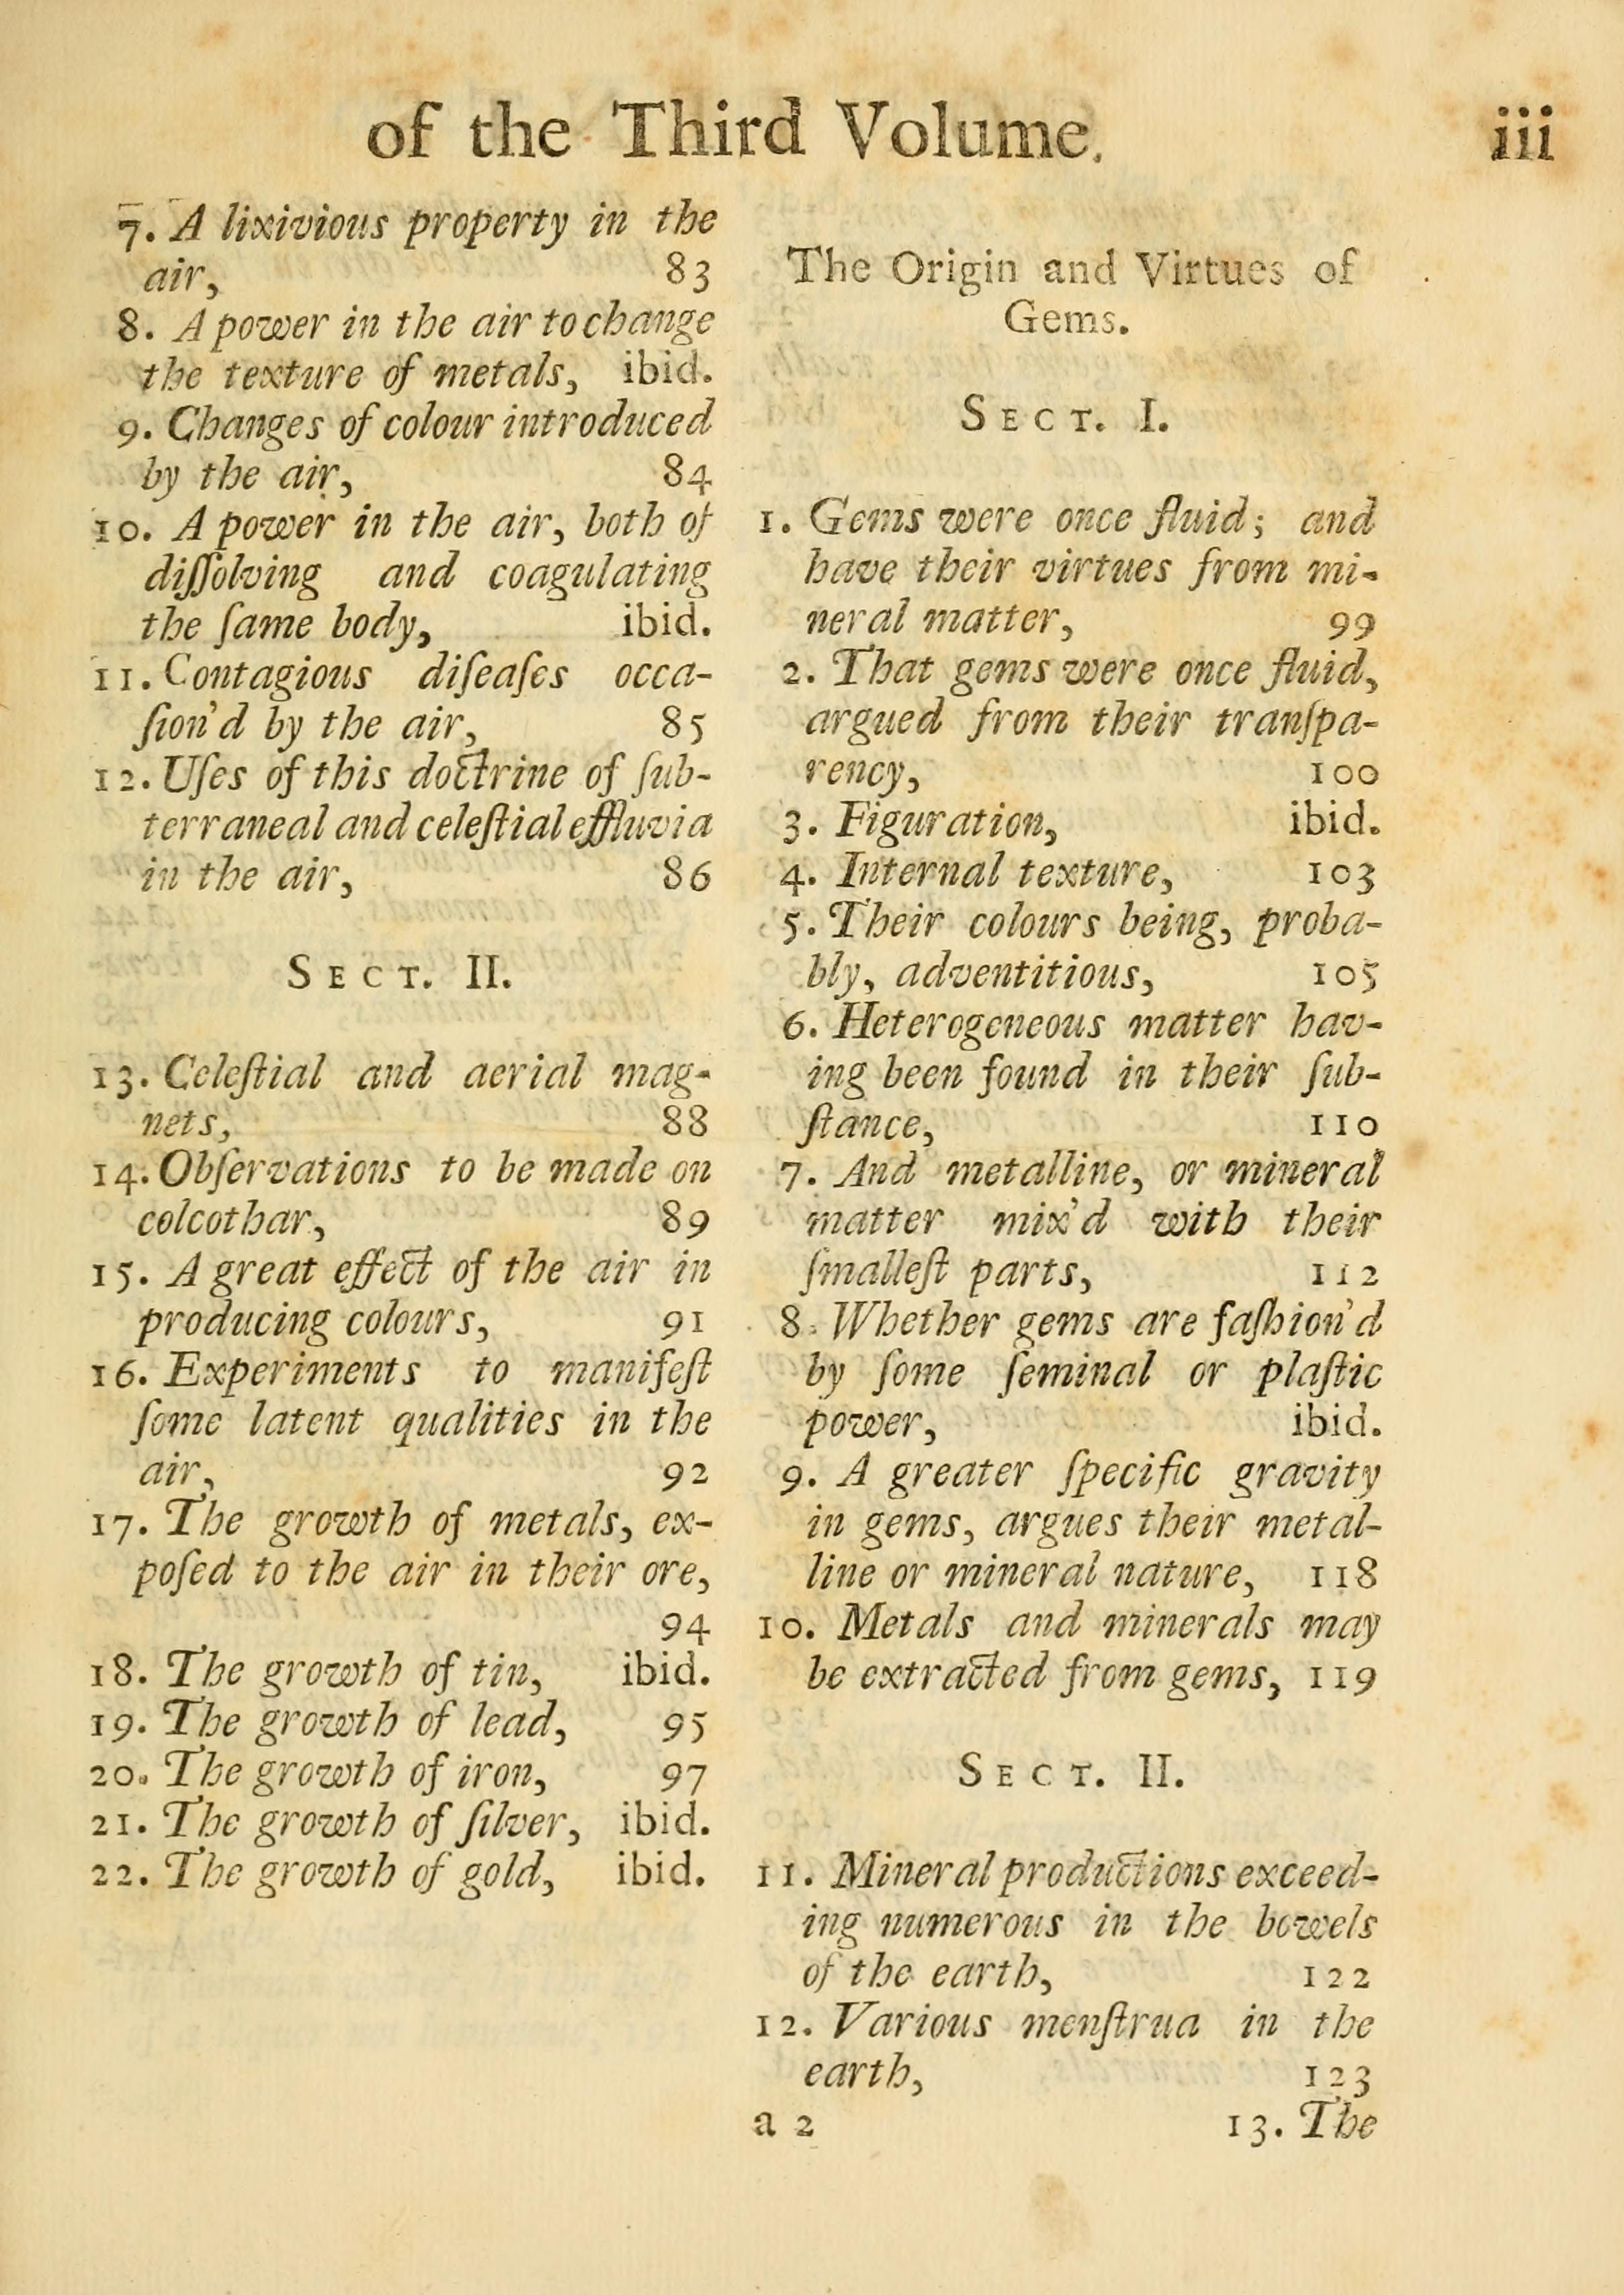 of the Third Volume.
iii
7. A lixivious property in the
air, 83
8. A power in the air to change
the texture of metals, ibid.
9. Changes of colour introduced
by the air, 84
10. A power in the air, both of
diſſolving and coagulating
the ſame body, ibid.
11. Contagious diſeaſes occa-
ſion'd by the air, 85
12. Uſes of this doctrine of ſub-
terraneal and celeſtial effluvia
in the air, 86
SECT. II.
13. Celeſtial and aerial mag-
nets, 88
14. Obſervations to be made on
colcothar, 89
15. A great effect of the air in
producing colours, 91
16. Experiments to manifeſt
ſome latent qualities in the
air, 92
17. The growth of metals, ex-
poſed to the air in their ore,
94
18. The growth of tin, ibid.
19. The growth of lead, 95
20. The growth of iron, 97
21. The growth of ſilver, ibid.
22. The growth of gold, ibid.
The Origin and Virtues of
Gems.
SECT. I.
1. Gems were once fluid; and
have their virtues from mi-
neral matter, 99
2. That gems were once fluid,
argued from their tranſpa-
rency, 100
3. Figuration, ibid.
4. Internal texture, 103
5. Their colours being, proba-
bly, adventitious, 105
6. Heterogeneous matter hav-
ing been found in their ſub-
ſtance, 110
7. And metalline, or mineral
matter mix'd with their
ſmalleſt parts, 112
8. Whether gems are faſhion'd
by ſome ſeminal or plaſtic
power, ibid.
9. A greater ſpecific gravity
in gems, argues their metal-
line or mineral nature, 118
10. Metals and minerals may
be extracted from gems, 119
SECT. II.
11. Mineral productions exceed-
ing numerous in the bowels
of the earth, 122
12. Various menſtrua in the
earth, 123
a 2 13. The